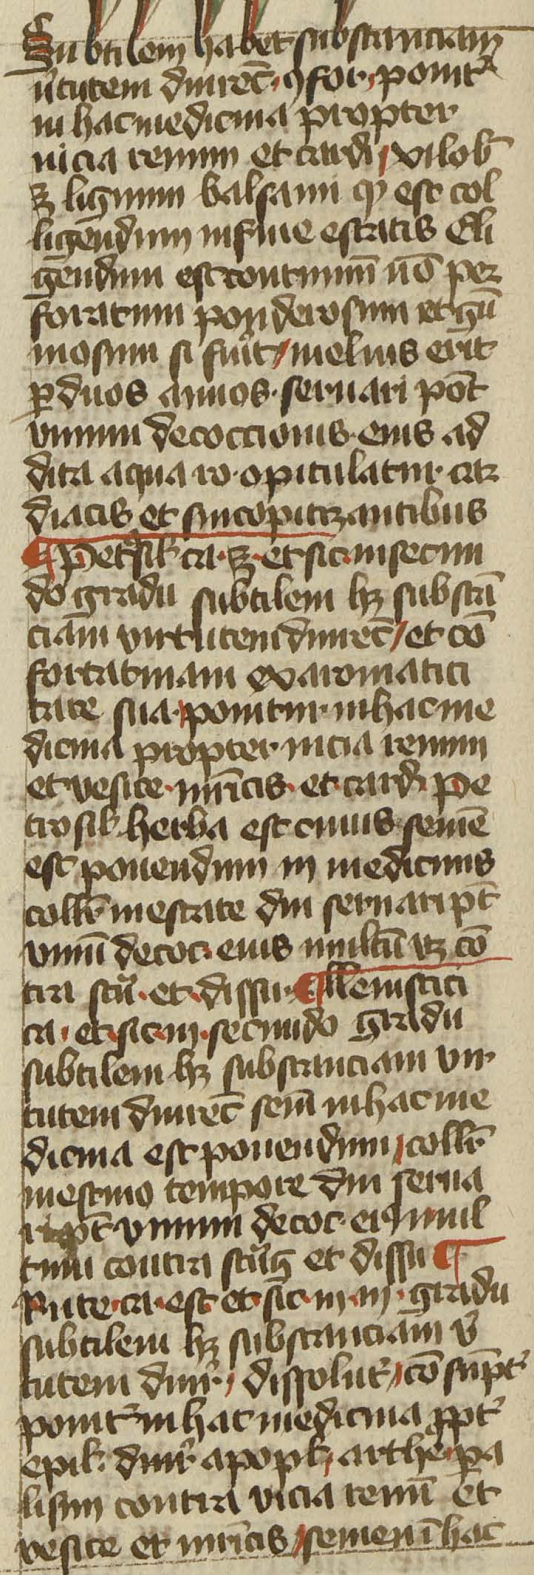 Subtilem habet substanciam
v̉tutem diuret̄ ꝯfor ponit᷑
in hac medicina propter
uicia renum et cardi xilob̄
ꝫ lignum balsami qd est col
ligendum in fine estatis Eli
gendum est continuū nō per
foratum ponderosum et gū
mosum si fuīt melius erit
ꝑ duos annos seruari pōt
vinum decoccionis eius ad
dita aqua ro opitulatur car
diacis et sincopizantibus
Petrosil᷑ ca ꝫ et sic in secun
do gradu subtilem hꝫ substā
ciam virtutem diuret̄ et cō
fortatiuam ex aromatici
tate sua ponitur in hac me
dicina propter uicia renum
et vesice mr̄icis et cardi Pe
trosil᷑ herba est cuius semē
est ponendum in medicinis
coll᷑r in estate diu seruari pt̄
vinū decoc eius multū uꝫ cō
tra stū et dissu Leuistici
ca et sic in secundo gradu
subtilem hꝫ substanciam vir
tutem diuret̄ sem̄ in hac me
dicina est ponendum coll᷑r
in estiuo tempore diu serua
ri pt̄ vinum decoc ei mul
tum contra stūg et dissu
Rute ca est et sic in iii gradu
subtilem hꝫ substanciam v̉
tutem diur᷑ dissolut᷑ cōsūpt᷑
ponit᷑ in hac medicina ꝓpt᷑
epil᷑ diur᷑ apopl᷑ arthe pa
lisim contra vicia renū et
vesice et mr̄icis semen ī hac